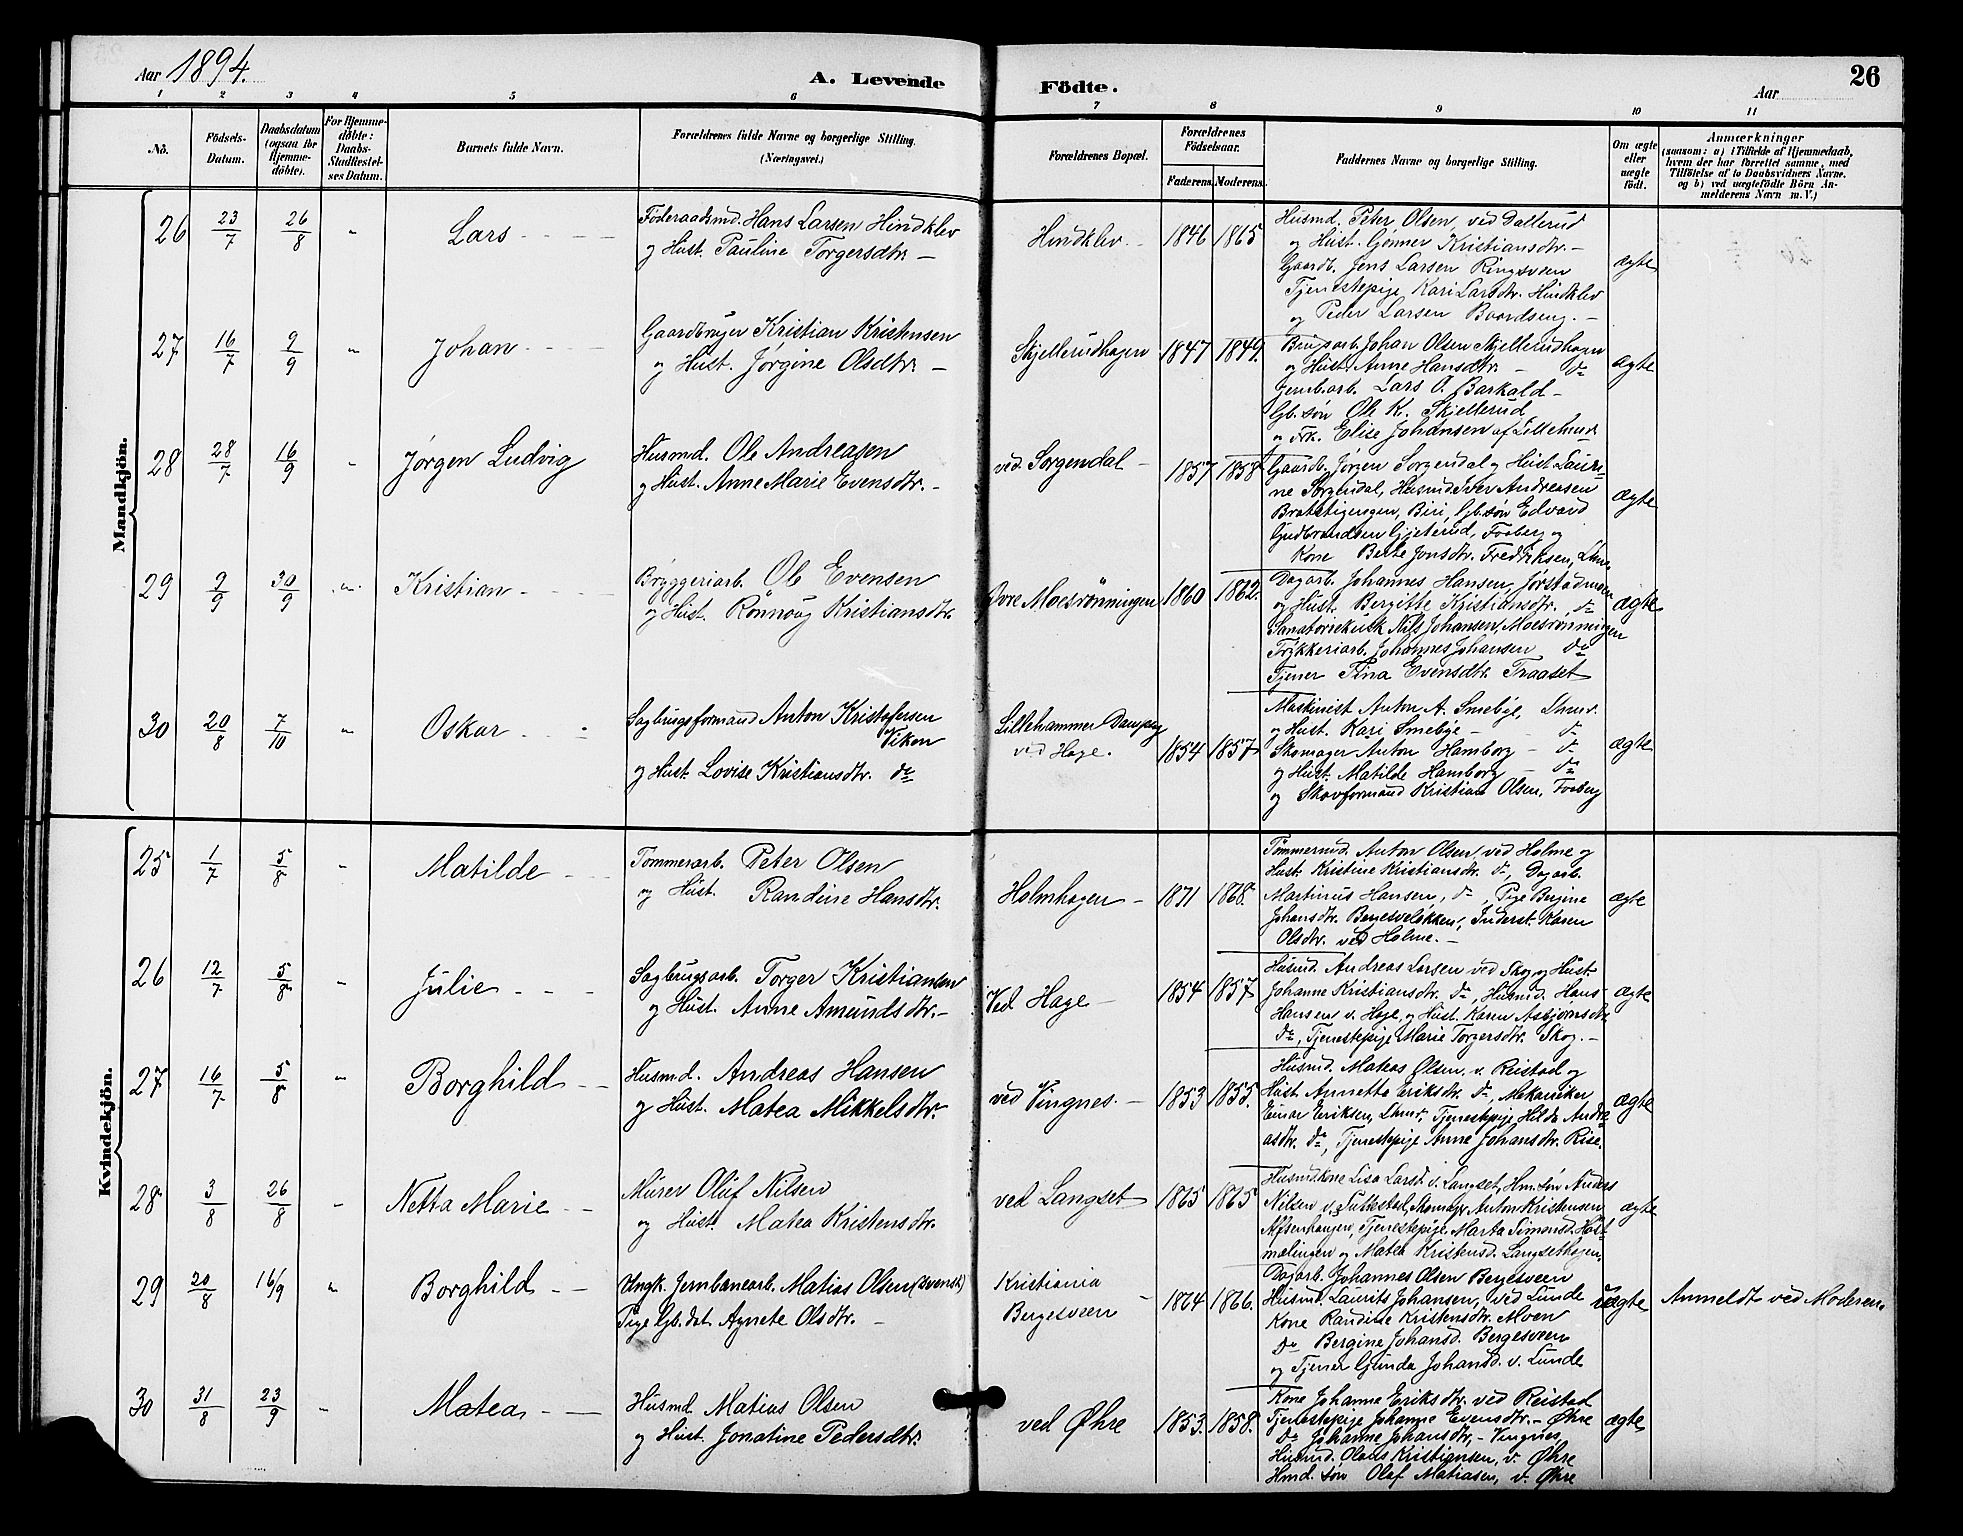 Aar 1894.
A. Levende Födte.
Aar
26
1 2 3 4 5 6 7 8 9 10 11
No.
Födsels-Datum.
Daabsdatum (ogsaa for Hjemme-döbte).
For Hjemme-döbte: Daabs-Stadfæstel-ses Datum.
Barnets fulde Navn.
Forældrenes fulde Navne og borgerlige Stilling.
(Næringsvei.)
Forældrenes Bopæl.
Forældrenes Födselsaar.
Faderens. Moderens.
Faddernes Navne og borgerlige Stilling.
Om ægte eller uægte født.
Anmærkninger
(saasom: a) i Tilfælde af Hjemmedaab,
hvem der har forrettet samme, med
Tilföielse af to Daabsvidners Navne.
og b) ved uægtefödte Börn An-
melderens Navn m. V.)
Mandkjön.
26 23/7 26/8 " Lars
Föderaadsmd. Hans Larsen Hindklev
og Hust. Pauline Torgersdtr. —
Hindklev. 1846 1865
Husmd. Peter Olsen, ved Dallerud
og Hust. Gønner Kristiansdtr. —
Gaardb. Jens Larsen Ringsveen
Tjenestepige Kari Larsdtr. Hindklev
og Peder Larsen Baardseng. —
ægte
27 16/7 9/9 " Johan
Gaardbruger Kristian Kristensen
og Hust. Jørgine Olsdtr. —
Skjellerudhagen 1847 1849.
Brugsarb. Johan Olsen Skjellerudhagen
og Hust. Anne Hansdtr. — do
Jernb.arb. Lars O. Barkald —
Gb.søn Ole K. Skjellerud
og Frk. Elise Johansen af Lillehmr.
ægte
28 28/7 16/9 " Jørgen Ludvig
Husmd. Ole Andreasen
og Hust. Anne Marie Evensdtr. —
ved Sorgendal — 1857 1858
Gaardb. Jørgen Sorgendal og Hust. Lauri-
ne Sorgendal, Husmd. Iver Andreasen
Biri, Gb.søn Edvard
Gudbrandsen Faaberg og
Kone Berte Jonsdtr. Fredriksen, Lhmr.
ægte
29 9/9 30/9 " Kristian
Bryggeriarb. Ole Evensen
og Hust. Rønnøug Kristiansdtr.
Øvre Moesrønningen 1860 1862.
Dagarb. Johannes Hansen, Jørstadmoen
og Hust. Bergitte Kristiansdtr., do
Nils Johansen, Moesrønningen
Trykkeriarb. Johannes Johansen do
Tjener Tina Evensdtr. Traaset
ægte
30 20/8 7/10 " Oskar
Sagbrugsformand Anton Kristofersen
Viken
og Hust. Lovise Kristiansdtr. do
Lillehammer Dampsag
ved Hage. 1854 1857
Maskinist Anton A. Smebye, Lhmr.
og Hust. Kari Smebye — do
Skomager Anton Hamborg — do
og Hust. Matilde Hamborg — do
og Skovformand Kristian Olsen, Faaberg
ægte
Kvindekjön.
25 1/7 5/8 " Matilde
Tømmerarb. Peter Olsen
og Hust. Randine Hansdtr.
Holmhagen — 1871 1868.
Tømmermd. Anton Olsen, ved Holme og
Hust. Kristine Kristiansdtr. do, Dagarb.
Martinus Hansen, do, Pige Bergine
Johansdtr. Bergesveløkken, Inderst. Karen
Olsdtr. ved Holme. —
ægte
26 12/7 5/8 " Julie
Sagbrugsarb. Torger Kristiansen
og Hust. Anne Amundsdtr. —
Ved Hage — 1854 1857
Husmd. Andreas Larsen ved Skog og Hust.
Johanne Kristiansdtr. do, Husmd. Hans
Hansen v. Hage, og Hust. Karen Asbjørnsdtr.
do, Tjenestepige Marie Torgersdtr. Skog. —
ægte
27 16/7 5/8 " Borghild
Husmd. Andreas Hansen
og Hust. Matea Mikkelsdtr.
ved Vingnes. — 1853 1855.
Husmd. Mateas Olsen v. Reistad og
Hust. Annette Eriksdtr. do, Mekaniker
Einar Eriksen, Lhmr., Tjenestepige Hilda Andre-
asdtr. do, Tjenestepige Anne Johansdtr. Rise.
ægte
28 3/8 26/8 " Netta Marie
Murer Oluf Nilsen
og Hust. Matea Kristensdtr.
ved Langset 1865 1865
Husmdkone Lisa Larsd. v. Langset, Hm. søn Anders
Nilsen v. Suttestad, Skomagr. Anton Kristensen
Tjenestepige Marta Simensd. Høst-
mælingen og Matea Kristensd. Langsethagen.
ægte
29 20/8 16/9 " Borghild
Ungk. Jernbanearb. Matias Olsen (svensk)
Pige Gb.dat. Agnete Olsdtr. —
Kristiania
Bergesveen — 1864 1866.
Dagarb. Johannes Olsen Bergesveen
Husmd. Laurits Johansen, ved Lunde
Kone Randine Kristensdtr. Moen
do Bergine Johansd. Bergesveen
og Tjener Gunda Johansd. v. Lunde
uægte
Anmeldt ved Moderen.
30 31/8 23/9 " Matea
Husmd. Matias Olsen
og Hust. Jonatine Pedersdtr.
ved Øhre 1853. 1858.
Kone Johanne Eriksdtr. ved Reistad
Tjenestepige Johanne Evensdtr. — Øhre
do Johanne Johansdtr. — Vingnes,
Husmd. Olaus Kristiansen, v. Øhre
Hmd. søn Olaf Matiasen, v. Øhre
ægte